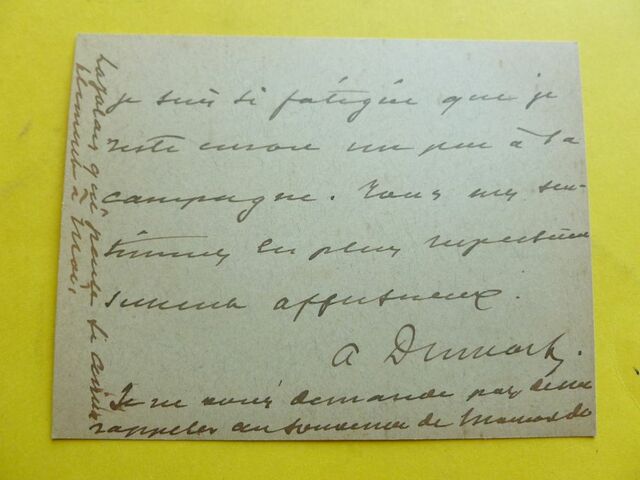 je suis si fatigué que je
reste encore un peu à la
campagne. Tous mes sen-
timens les plus respectueu
sement affectueux.
A
Je ne vous demande pas de me
rappeler au souvenir de
qui pense si
à moi.